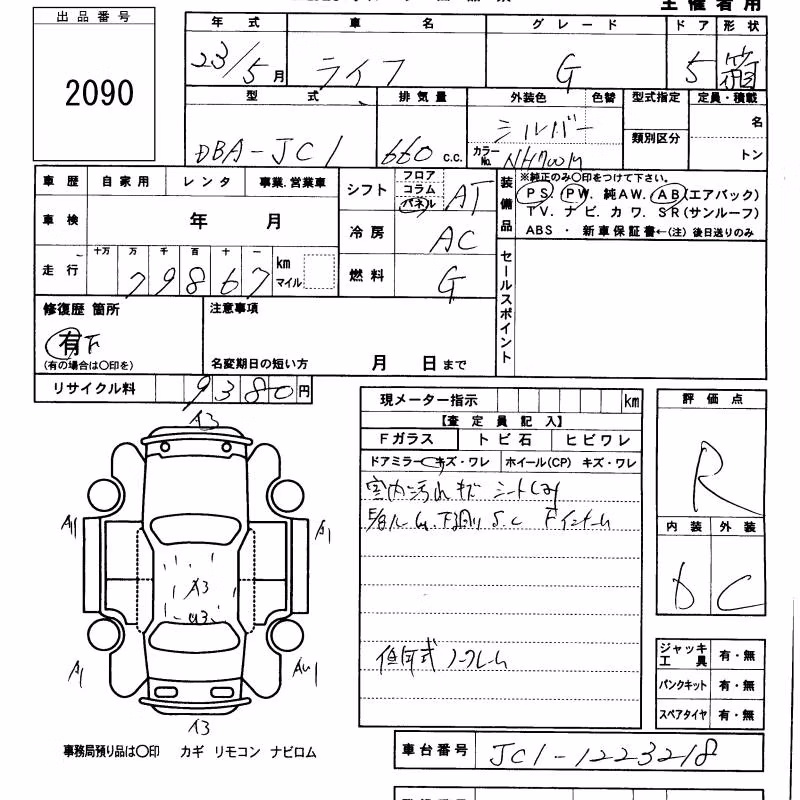 出品番号
2090
主催者用
年式 車名 グレード ドア 形状
23/5月 ライフ G 5 箱
型式 排気量 外装色 色替 型式指定 定員・積載
DBA-JC1 660 c.c. シルバー
カラーNo. NH700M
類別区分 名
トン
車歴 自家用 レンタ 事業.営業車
車検 年 月
走行 十万 万 千 百 十 一
79867 km マイル
シフト フロア コラム パネル AT
冷房 AC
燃料 G
装備品 ※純正のみ○印をつけて下さい。
PS. PW. 純AW. AB(エアバック)
TV. ナビ. カワ. SR(サンルーフ)
ABS ・ 新車保証書←(注) 後日送りのみ
セールスポイント
修復歴 箇所
有
(有の場合は○印を)
注意事項
名変期日の短い方 月 日まで
リサイクル料 9380円
現メーター指示 km
【査定員記入】
Fガラス トビ石 ヒビワレ
ドアミラー キズ・ワレ ホイール(CP) キズ・ワレ
室内汚れキズ シート
下廻り S.C
評価点
R
内装 外装
D C
ジャッキ工具 有・無
パンクキット 有・無
スペアタイヤ 有・無
A3
A1
A1
A3
A1
A3
事務局預り品は○印 カギ リモコン ナビロム
車台番号 JC1-1223218